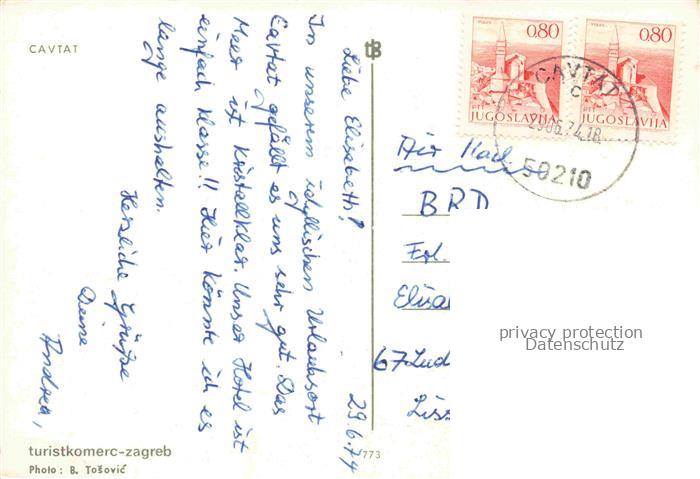 CAVTAT
Liebe Elisabeth!
29.6.74
In unserem idyllischen Urlaubsort
Cavtat gefällt es uns sehr gut. Das
Meer ist kristallklar. Unser Hotel ist
einfach Klasse!! Hier könnte ich es
lange aushalten.
Herzliche Grüße
Deine
Andrea,
turistkomerc-zagreb
Photo : B. Tošović
773
0.80
JUGOSLAVIJA
0.80
JUGOSLAVIJA
CAVTAT
c
29.06.74.18
50210
Air Mail
BRD
Frl.
Elisa
67 Lud
Liss
privacy protection
Datenschutz